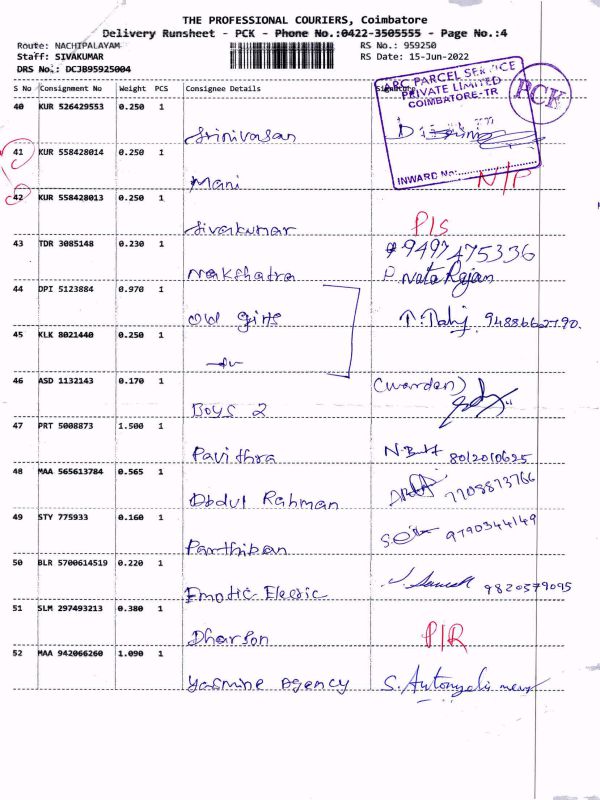 THE PROFESSIONAL COURIERS, Coimbatore
Delivery Runsheet - PCK - Phone No.:0422-3505555 - Page No.:4
Route: NACHIPALAYAM
RS No.: 959250
Staff: SIVAKUMAR
RS Date: 15-Jun-2022
DRS No.: DCJB95925004
S No Consignment No Weight PCS Consignee Details
ABC PARCEL SERVICE
PRIVATE LIMITED
COIMBATORE-TR
PCK
INWARD No:
40 KUR 526429553 0.250 1
Srinivasan
41 KUR 558428014 0.250 1
Mani N/P
42 KUR 558428013 0.250 1
Sivakumar P/S
43 TDR 3085148 0.230 1 9497475336
Nakshatra P. Nata Rajan
44 DPI 5123884 0.970 1
Old girls
45 KLK 8021440 0.250 1
46 ASD 1132143 0.170 1 (warden)
Boys 2
47 PRT 5008873 1.500 1
Pavithra 8012010625
48 MAA 565613784 0.565 1
Abdul Rahman 7708873766
49 STY 775933 0.160 1
Parthiban 9790344149
50 BLR 5700614519 0.220 1
Emotic Elecsic 9820579095
51 SLM 297493213 0.380 1
Dharson P/R
52 MAA 942066260 1.090 1
Yasmine Agency